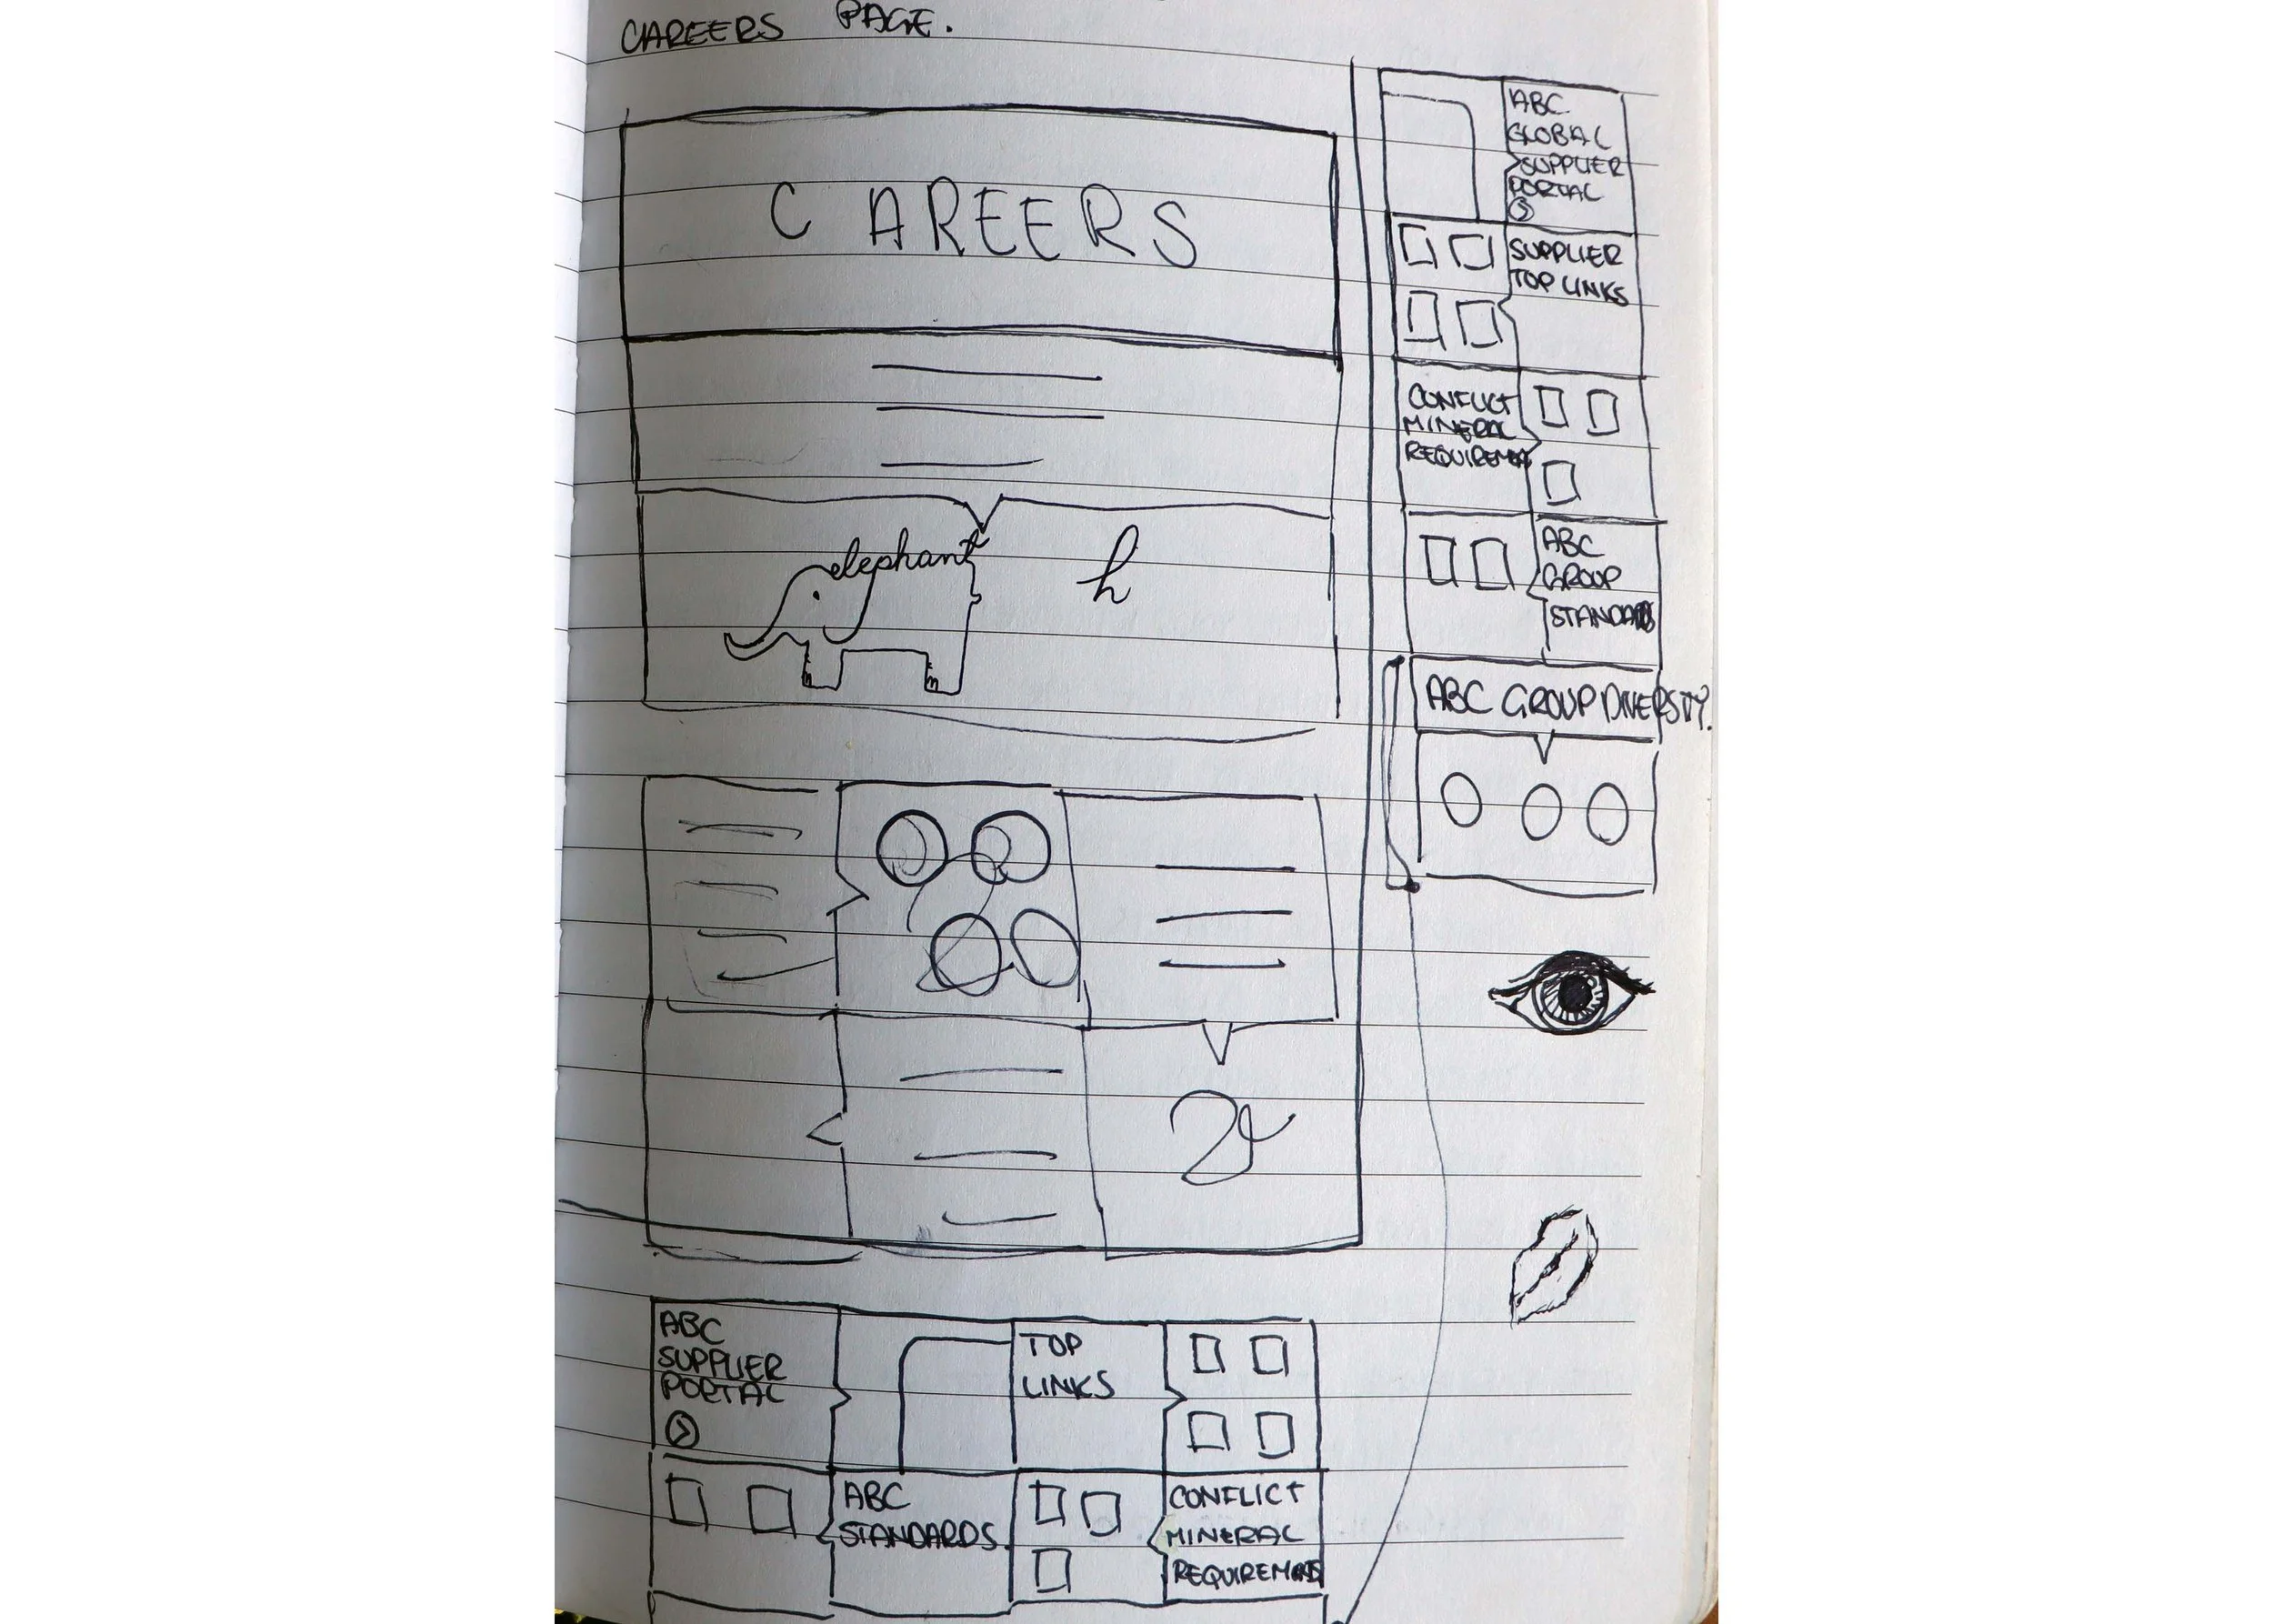 CAREERS PAGE.
CAREERS
elephant
h
ABC
GLOBAL
SUPPLIER
PORTAL
SUPPLIER
TOP LINKS
CONFLICT
MINERAL
ABC
GROUP
STANDARDS
ABC GROUP DIVERSITY.
ABC
SUPPLIER
PORTAL
TOP
LINKS
ABC
STANDARDS.
CONFLICT
MINERAL